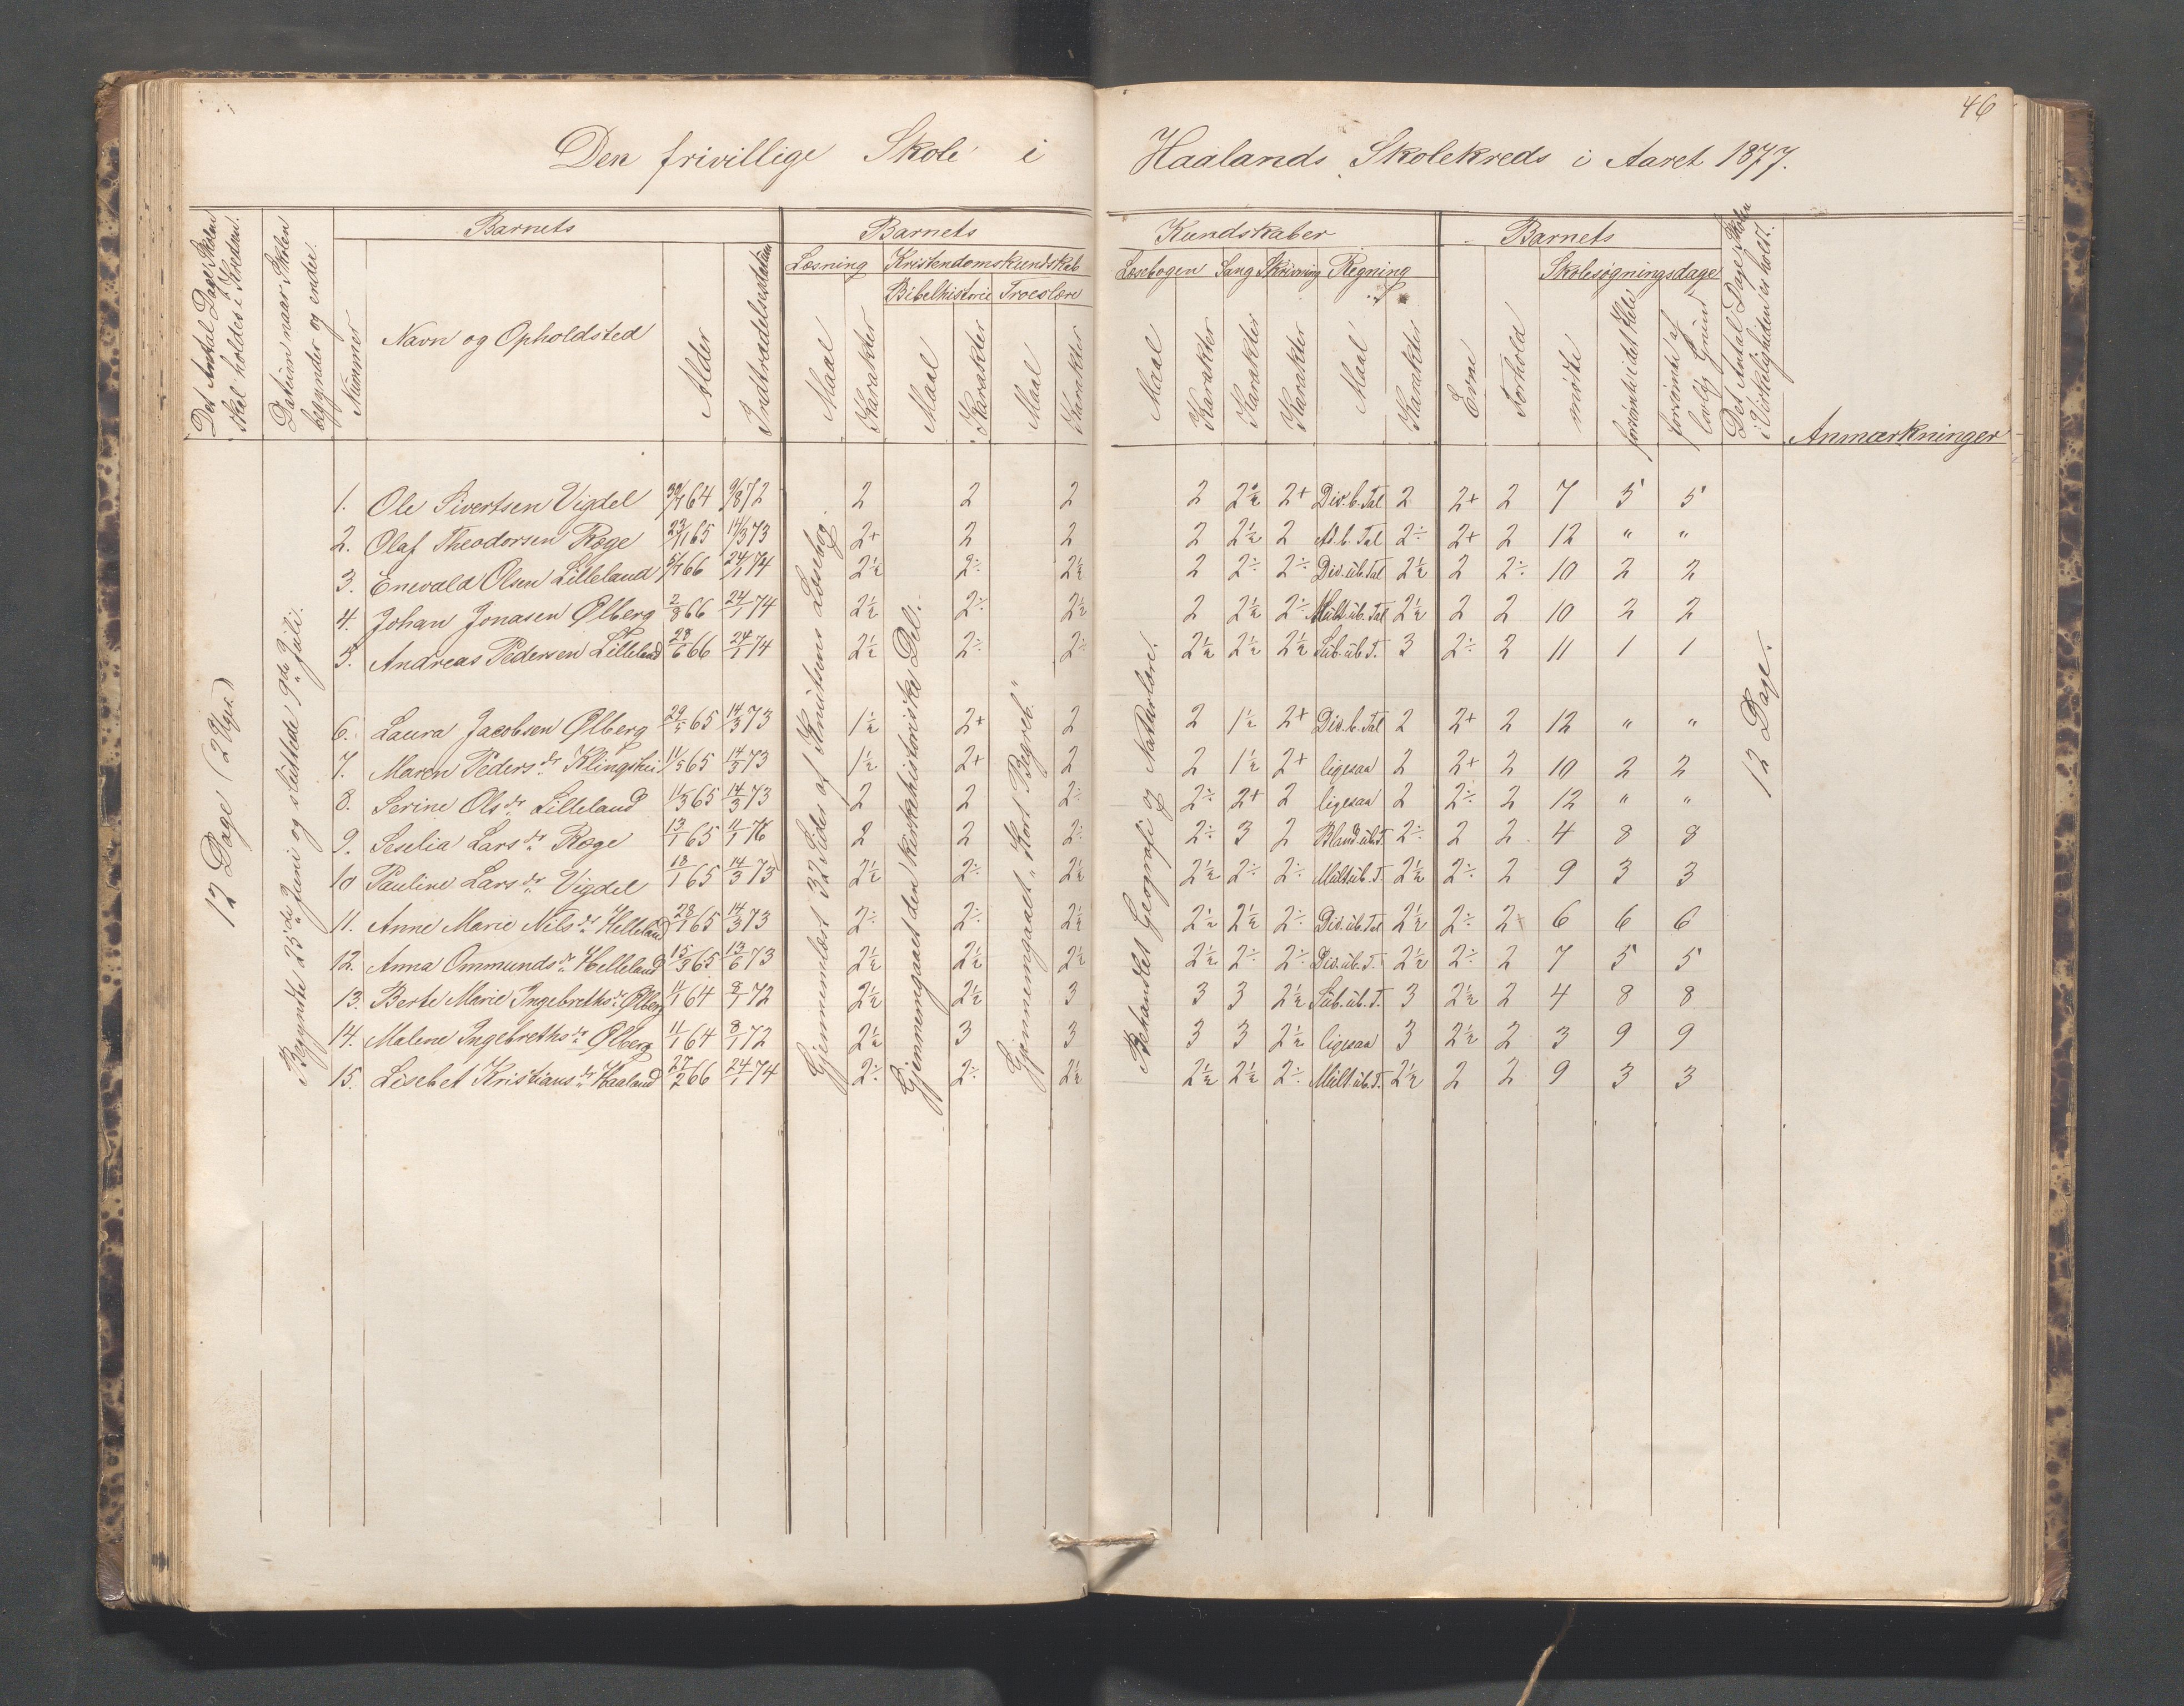 46
Den frivillige Skole i Haalands Skolekreds i Aaret 1877.
Det Antal Dage Skolen skal holdes i Kredsen.
Datum naar Skolen begynder og ender.
Barnets
Nummer
Navn og Opholdsted
Alder
Indtrædelsesdatum
Barnets Kundskaber
Læsning
Kristendomskundskab
Bibelhistorie
Troeslære
Læsebogen
Sang
Skrivning
Regning
Maal
Karakter
Maal
Karakter
Maal
Karakter
Maal
Karakter
Karakter
Karakter
Maal
Karakter
Barnets
Evne
Forhold
Skolesøgningsdage
mødte
forsømte i det Hele
forsømte af lovlig Grund
Det Antal Dage Skolen i Virkeligheden er holdt.
Anmærkninger
12 Dage (2 Uger)
Begyndte 25de Juni og sluttede 9de Juli.
Gjennemlæst 32 Sider af Knutsens Læsebog.
Gjennemgaaet den kirkehistoriske Del.
Gjennemgaaet "Kort Begreb."
Behandlet Geografi og Naturlære.
12 Dage.
1. Ole Sivertsen Vigdel 30/7 64 9/8 72 2 2 2 2 2½ 2+ Div. b. Tal 2 2+ 2 7 5 5
2. Olaf Theodorsen Røge 23/1 65 14/3 73 2+ 2 2 2 2½ 2 Ad. b. Tal 2÷ 2+ 2 12 " "
3. Enevald Olsen Lilleland 5/7 66 24/1 74 2½ 2÷ 2½ 2 2÷ 2÷ Div. ub. Tal 2½ 2 2÷ 10 2 2
4. Johan Jonasen Ølberg 2/8 66 24/1 74 2½ 2÷ 2½ 2 2½ 2÷ Mult. ub. Tal 2½ 2 2 10 2 2
5. Andreas Pedersen Lilleland 28/6 66 24/1 74 2½ 2÷ 2÷ 2½ 2½ 2½ Sub. ub. T. 3 2÷ 2 11 1 1
6. Laura Jacobsen Ølberg 29/5 65 14/3 73 1½ 2+ 2 2 1½ 2+ Div. b. Tal 2 2+ 2 12 " "
7. Maren Pedersdr Klingshei 11/5 65 14/3 73 1½ 2+ 2 2 1½ 2+ ligesaa 2 2+ 2 10 2 2
8. Serine Olsdr Lilleland 11/3 65 14/3 73 2 2 2÷ 2÷ 2+ 2 ligesaa 2 2÷ 2 12 " "
9. Seselia Larsdr Røge 13/1 65 11/1 76 2 2 2÷ 2÷ 3 2 Bland. ub. T. 2÷ 2 2 4 8 8
10 Pauline Larsdr Vigdel 18/1 65 14/3 73 2½ 2÷ 2½ 2½ 2÷ 2÷ Mult ub. T. 2½ 2÷ 2 9 3 3
11. Anne Marie Nilsdr Helleland 28/1 65 14/3 73 2÷ 2÷ 2½ 2½ 2½ 2÷ Div. ub. Tal 2½ 2÷ 2+ 6 6 6
12. Anna Ommundsdr Helleland 15/3 65 13/6 73 2½ 2½ 2½ 2½ 2÷ 2÷ Div. ub. T. 2½ 2÷ 2 7 5 5
13. Berte Marie Ingebrethsdr Ølberg 11/1 64 8/1 72 2½ 2½ 3 3 3 2½ Sub. ub. T. 3 2½ 2 4 8 8
14. Malene Ingebrethsdr Ølberg 11/1 64 8/1 72 2½ 3 3 3 3 2½ ligesaa 3 2½ 2 3 9 9
15. Lisebet Kristiansdr Haaland 27/2 66 24/1 74 2÷ 2÷ 2½ 2½ 2½ 2÷ Mult ub. T. 2½ 2 2 9 3 3